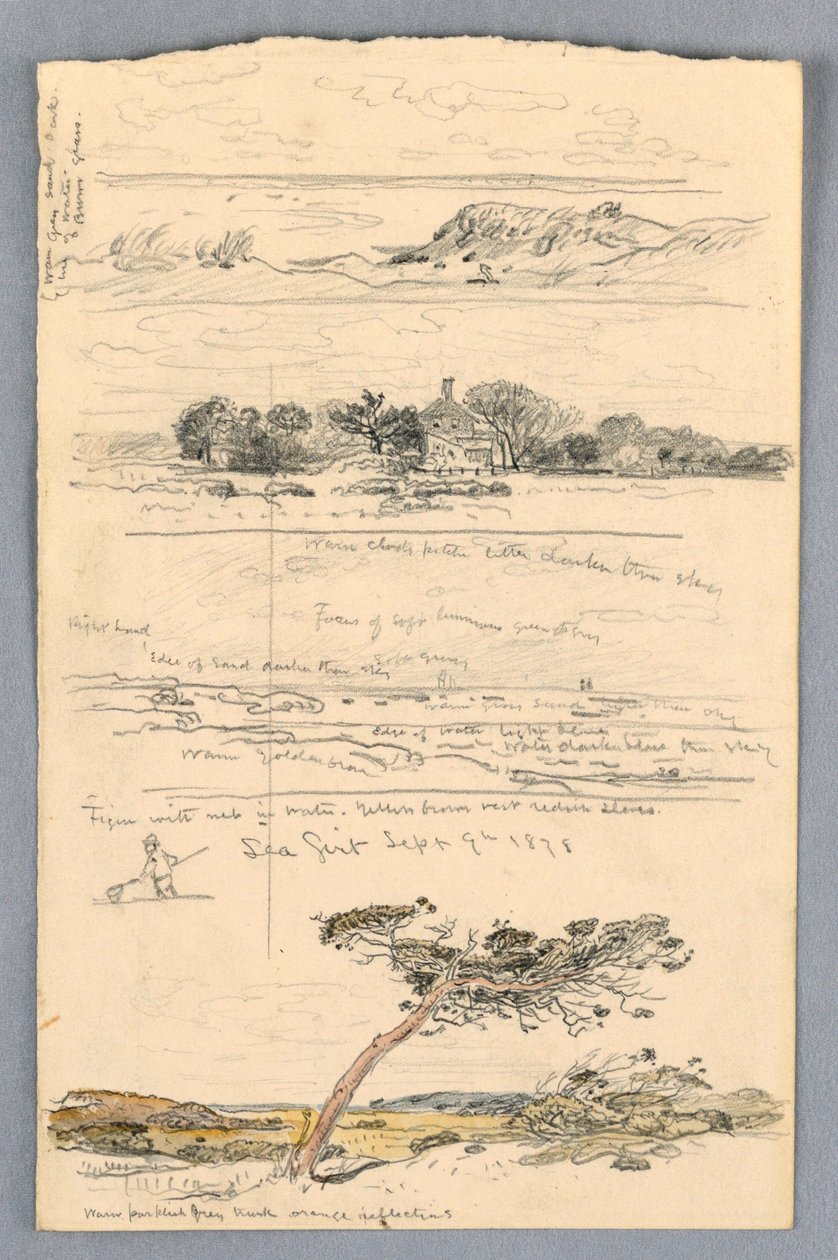 Warm grey sand. Dark.
line of water.
Brown grass.
Warm clouds little darker than sky
Focus of soft luminous green
Right hand
Soft grey
Edge of Sand darker than sky
Warm grass sand than sky
Edge of water light blue
Water darker blue than sky
Warm Golden brown
Figure with net in water. Yellow brown vest redish
Sea Girt Sept 9th 1878
Warm purplish Grey trunk orange reflections